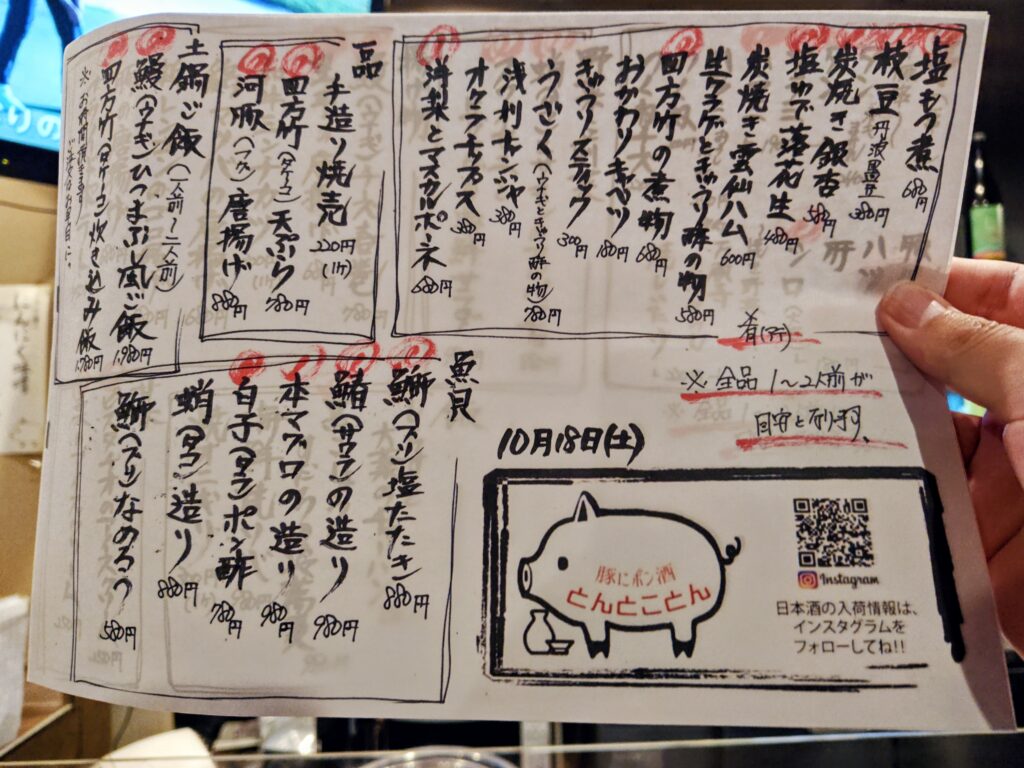 塩もつ煮 680円
枝豆(丹波黒豆) 380円
炭焼き銀杏 580円
塩ゆで落花生 480円
炭焼き雲仙ハム 600円
生クラゲときゅうり酢の物 580円
四方竹の煮物 680円
おかわりキャベツ 180円
きゅうりスティック 300円
うざく(ウナギときゅうり酢の物) 780円
浅利チャンジャ 380円
オクラチップス 380円
洋梨とマスカルポーネ 680円
一品
手造り焼売 220円(1ケ)
四方竹(タケノコ)天ぷら 780円
河豚(フグ)唐揚げ 880円
土鍋ご飯(一人前〜二人前)
鰻(ウナギ)ひつまぶし風ご飯 1,980円
四方竹(タケノコ)炊き込み飯 1,780円
※お時間頂きます
肴(アテ)
※全品1〜2人前が
目安と
10月18日(土)
魚貝
鰤(ブリ)塩たたき 880円
鰆(サワラ)の造り 980円
本マグロの造り 980円
白子(タラ)ポン酢 780円
蛸(タコ)造り 880円
鰤(ブリ)なめろう 580円
豚にポン酒
とんとことん
Instagram
日本酒の入荷情報は、
インスタグラムを
フォローしてね!!